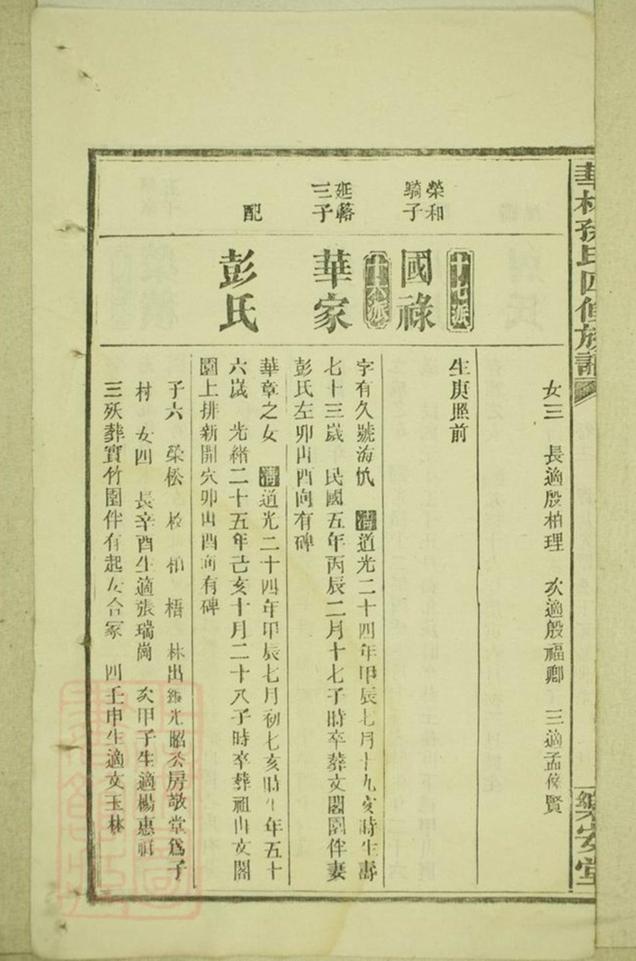 華林孫氏四修族譜
樂安堂
女三 長適殷柏理 次適殷福卿 三適孟俊賢
十七派
榮和
騎子
國祿
生庚照前
十六派
延
三子
華家
字有久號海 清道光二十四年甲辰七月十九亥時生壽
七十三歲 民國五年丙辰二月十七子時卒葬文閣園伴妻
彭氏左卯山酉向有碑
配
彭氏
華章之女 清道光二十四年甲辰七月初七亥時生年五十
六歲 光緒二十五年己亥十月二十八子時卒葬祖山文閣
園上排新開穴卯山酉向有碑
子六 榮松 柏 梧 林出繼光昭公房敬堂為子
村 女四 長辛酉生適張瑞崗 次甲子生適楊惠祖
三殀葬寶竹園伴有起女合冢 四壬申生適文玉林